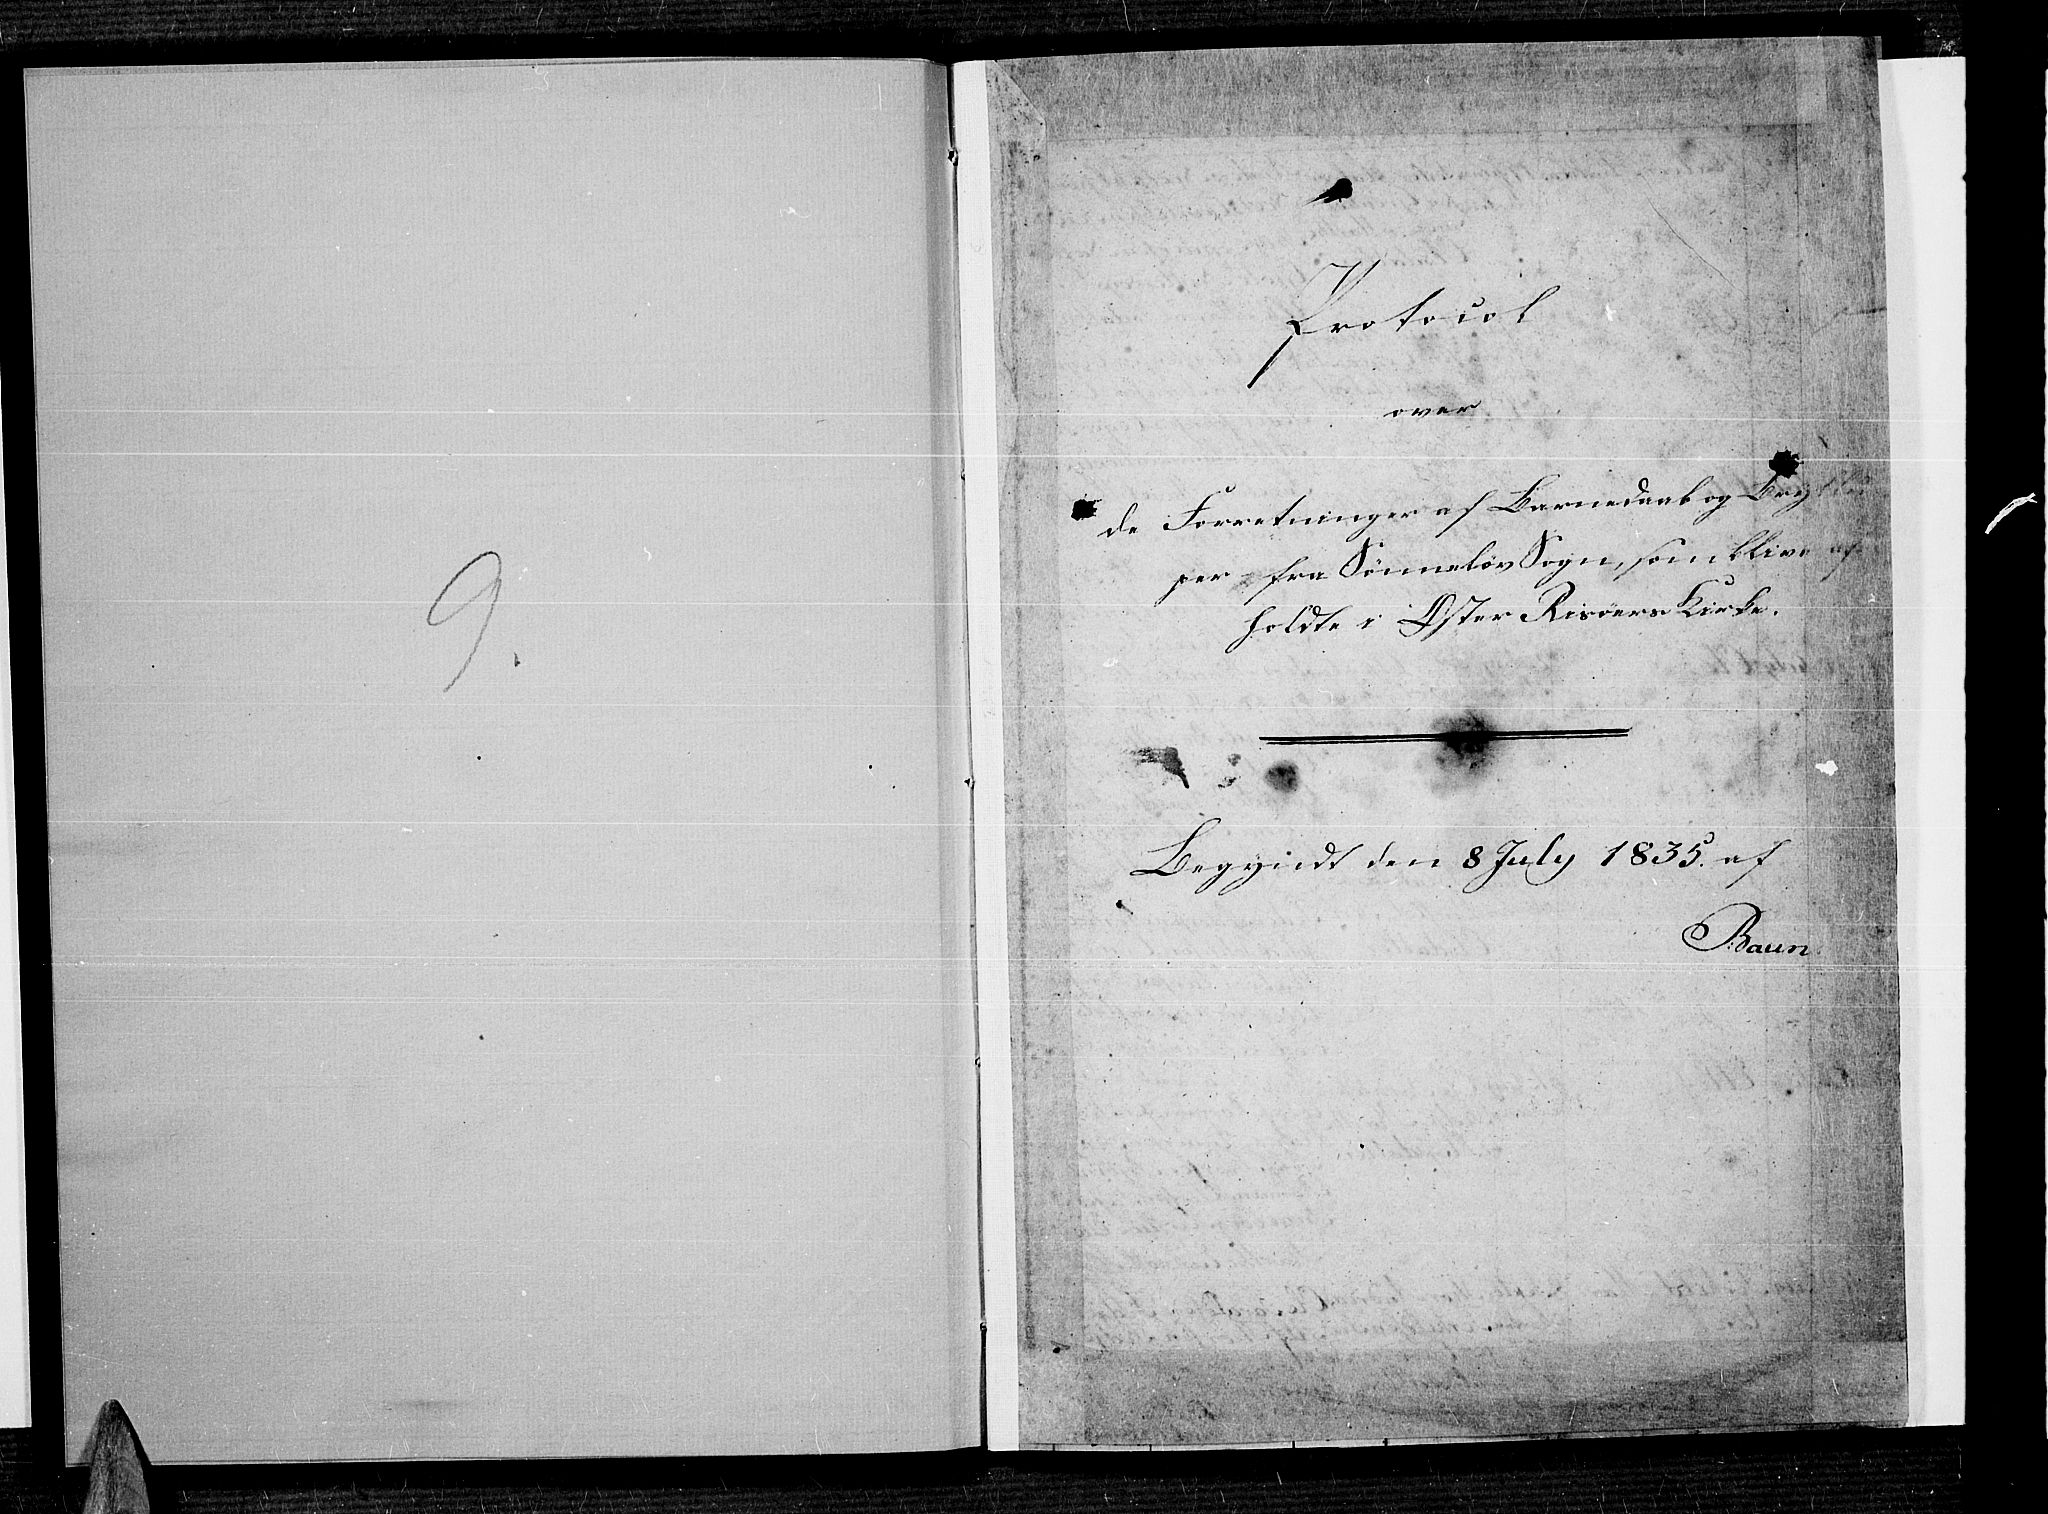 9.
Protocol
over
de Forretninger af Barnedaab og Bryllup
per fra Sönneløv Sogn, som blive af
holdte i Øster Risöers Kirke.
Begyndt den 8 July 1835. af
Baun